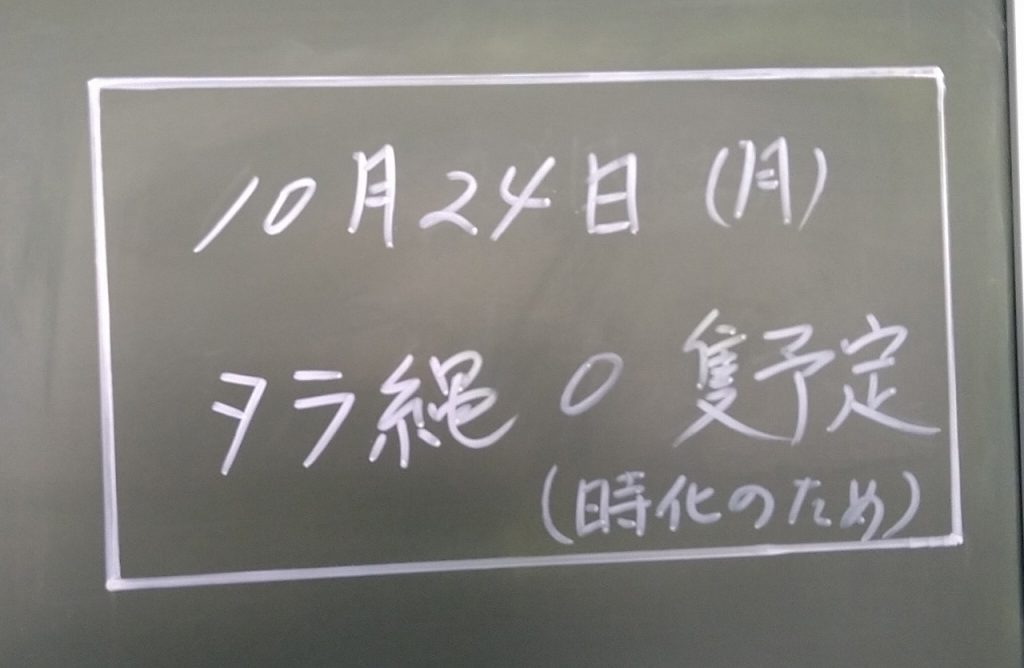 10月24日(月)
タラ縄 0 隻予定
(時化のため)